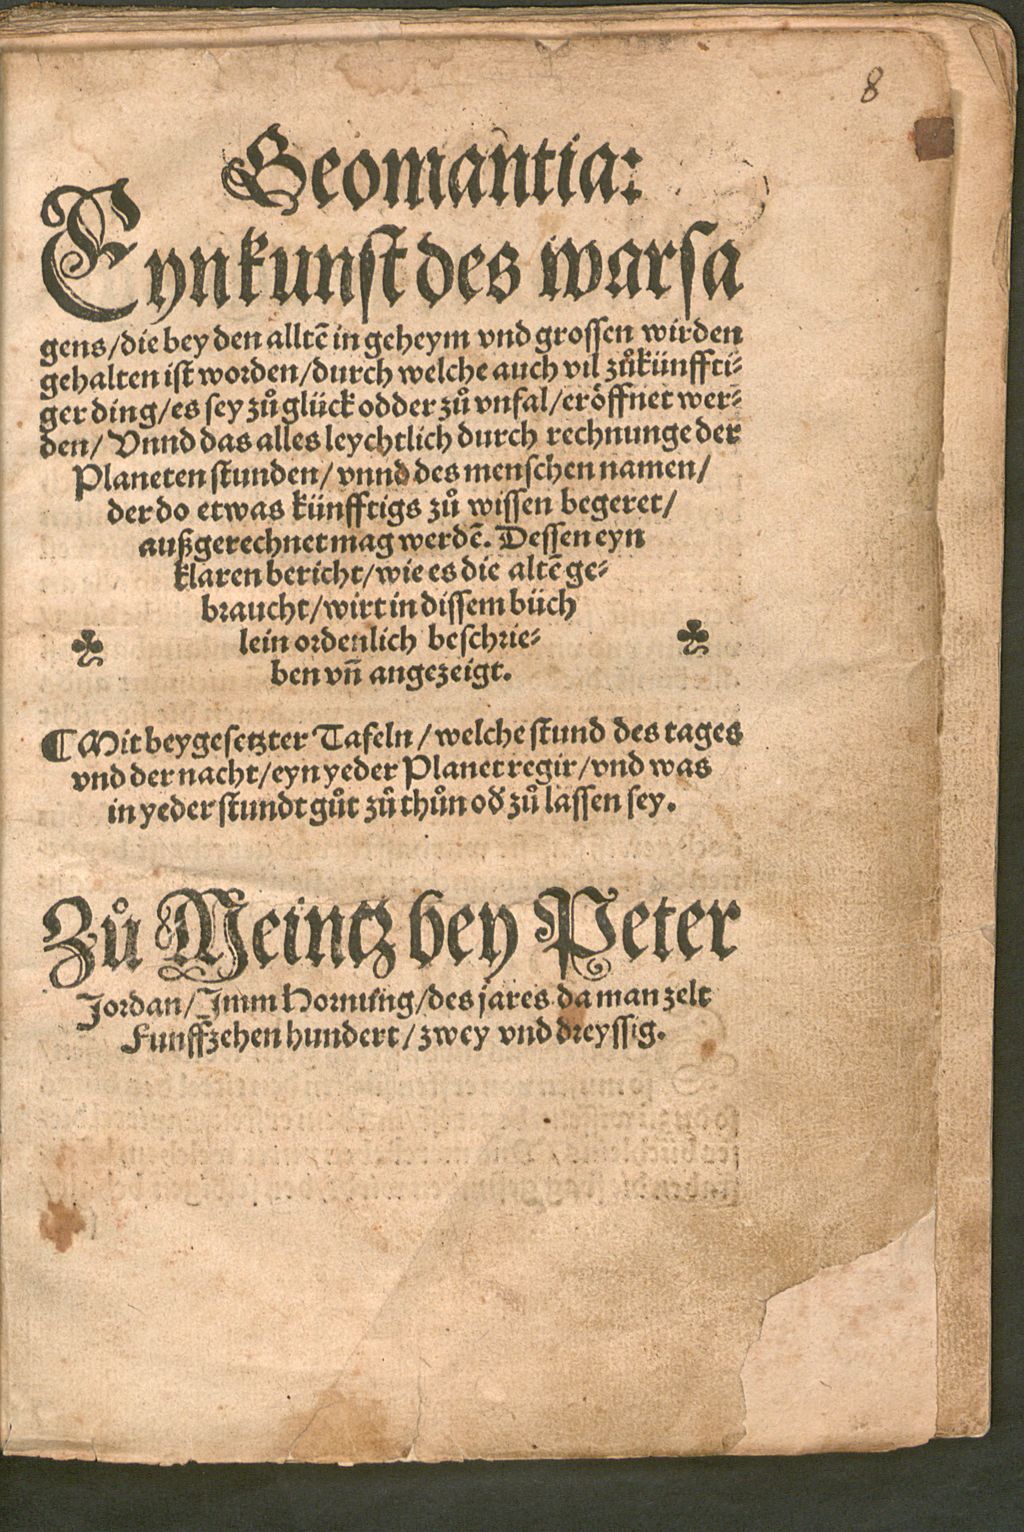 8
Geomantia:
Eyn kunst des warsa
gens/die bey den alltē in geheym vnd grossen wirden
gehalten ist worden/durch welche auch vil zůkünffti⸗
ger ding/es sey zů glück odder zů vnfal/eröffnet wer⸗
den/ Vnnd das alles leychtlich durch rechnunge der
Planeten stunden/ vnnd des menschen namen/
der do etwas künfftigs zů wissen begeret/
außgerechnet mag werdē. Dessen eyn
klaren bericht/wie es die altē ge⸗
braucht/wirt in dissem büch
lein ordenlich beschrie⸗
ben vn̄ angezeigt.
¶ Mit beygesetzter Tafeln/welche stund des tages
vnd der nacht/eyn yeder Planet regir/vnd was
in yeder stundt gůt zů thůn od̕ zů lassen sey.
Zů Meintz bey Peter
Jordan/Imm Hornung/des jares da man zelt
Funffzehen hundert/zwey vnd dreyssig.